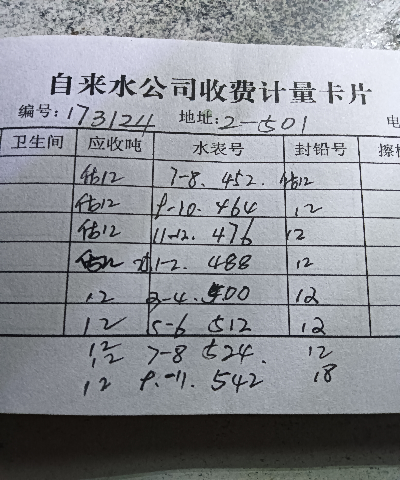 自来水公司收费计量卡片
编号: 173124 地址: 2-501 电
卫生间 应收吨 水表号 封铅号 擦
估12 7-8. 452. 估12
估12 9-10. 464 12
估12 11-12. 476 12
估12 1-2. 488 12
12 3-4. 500 12
12 5-6 512 12
12 7-8 524. 12
12
12 9.-11. 542 18